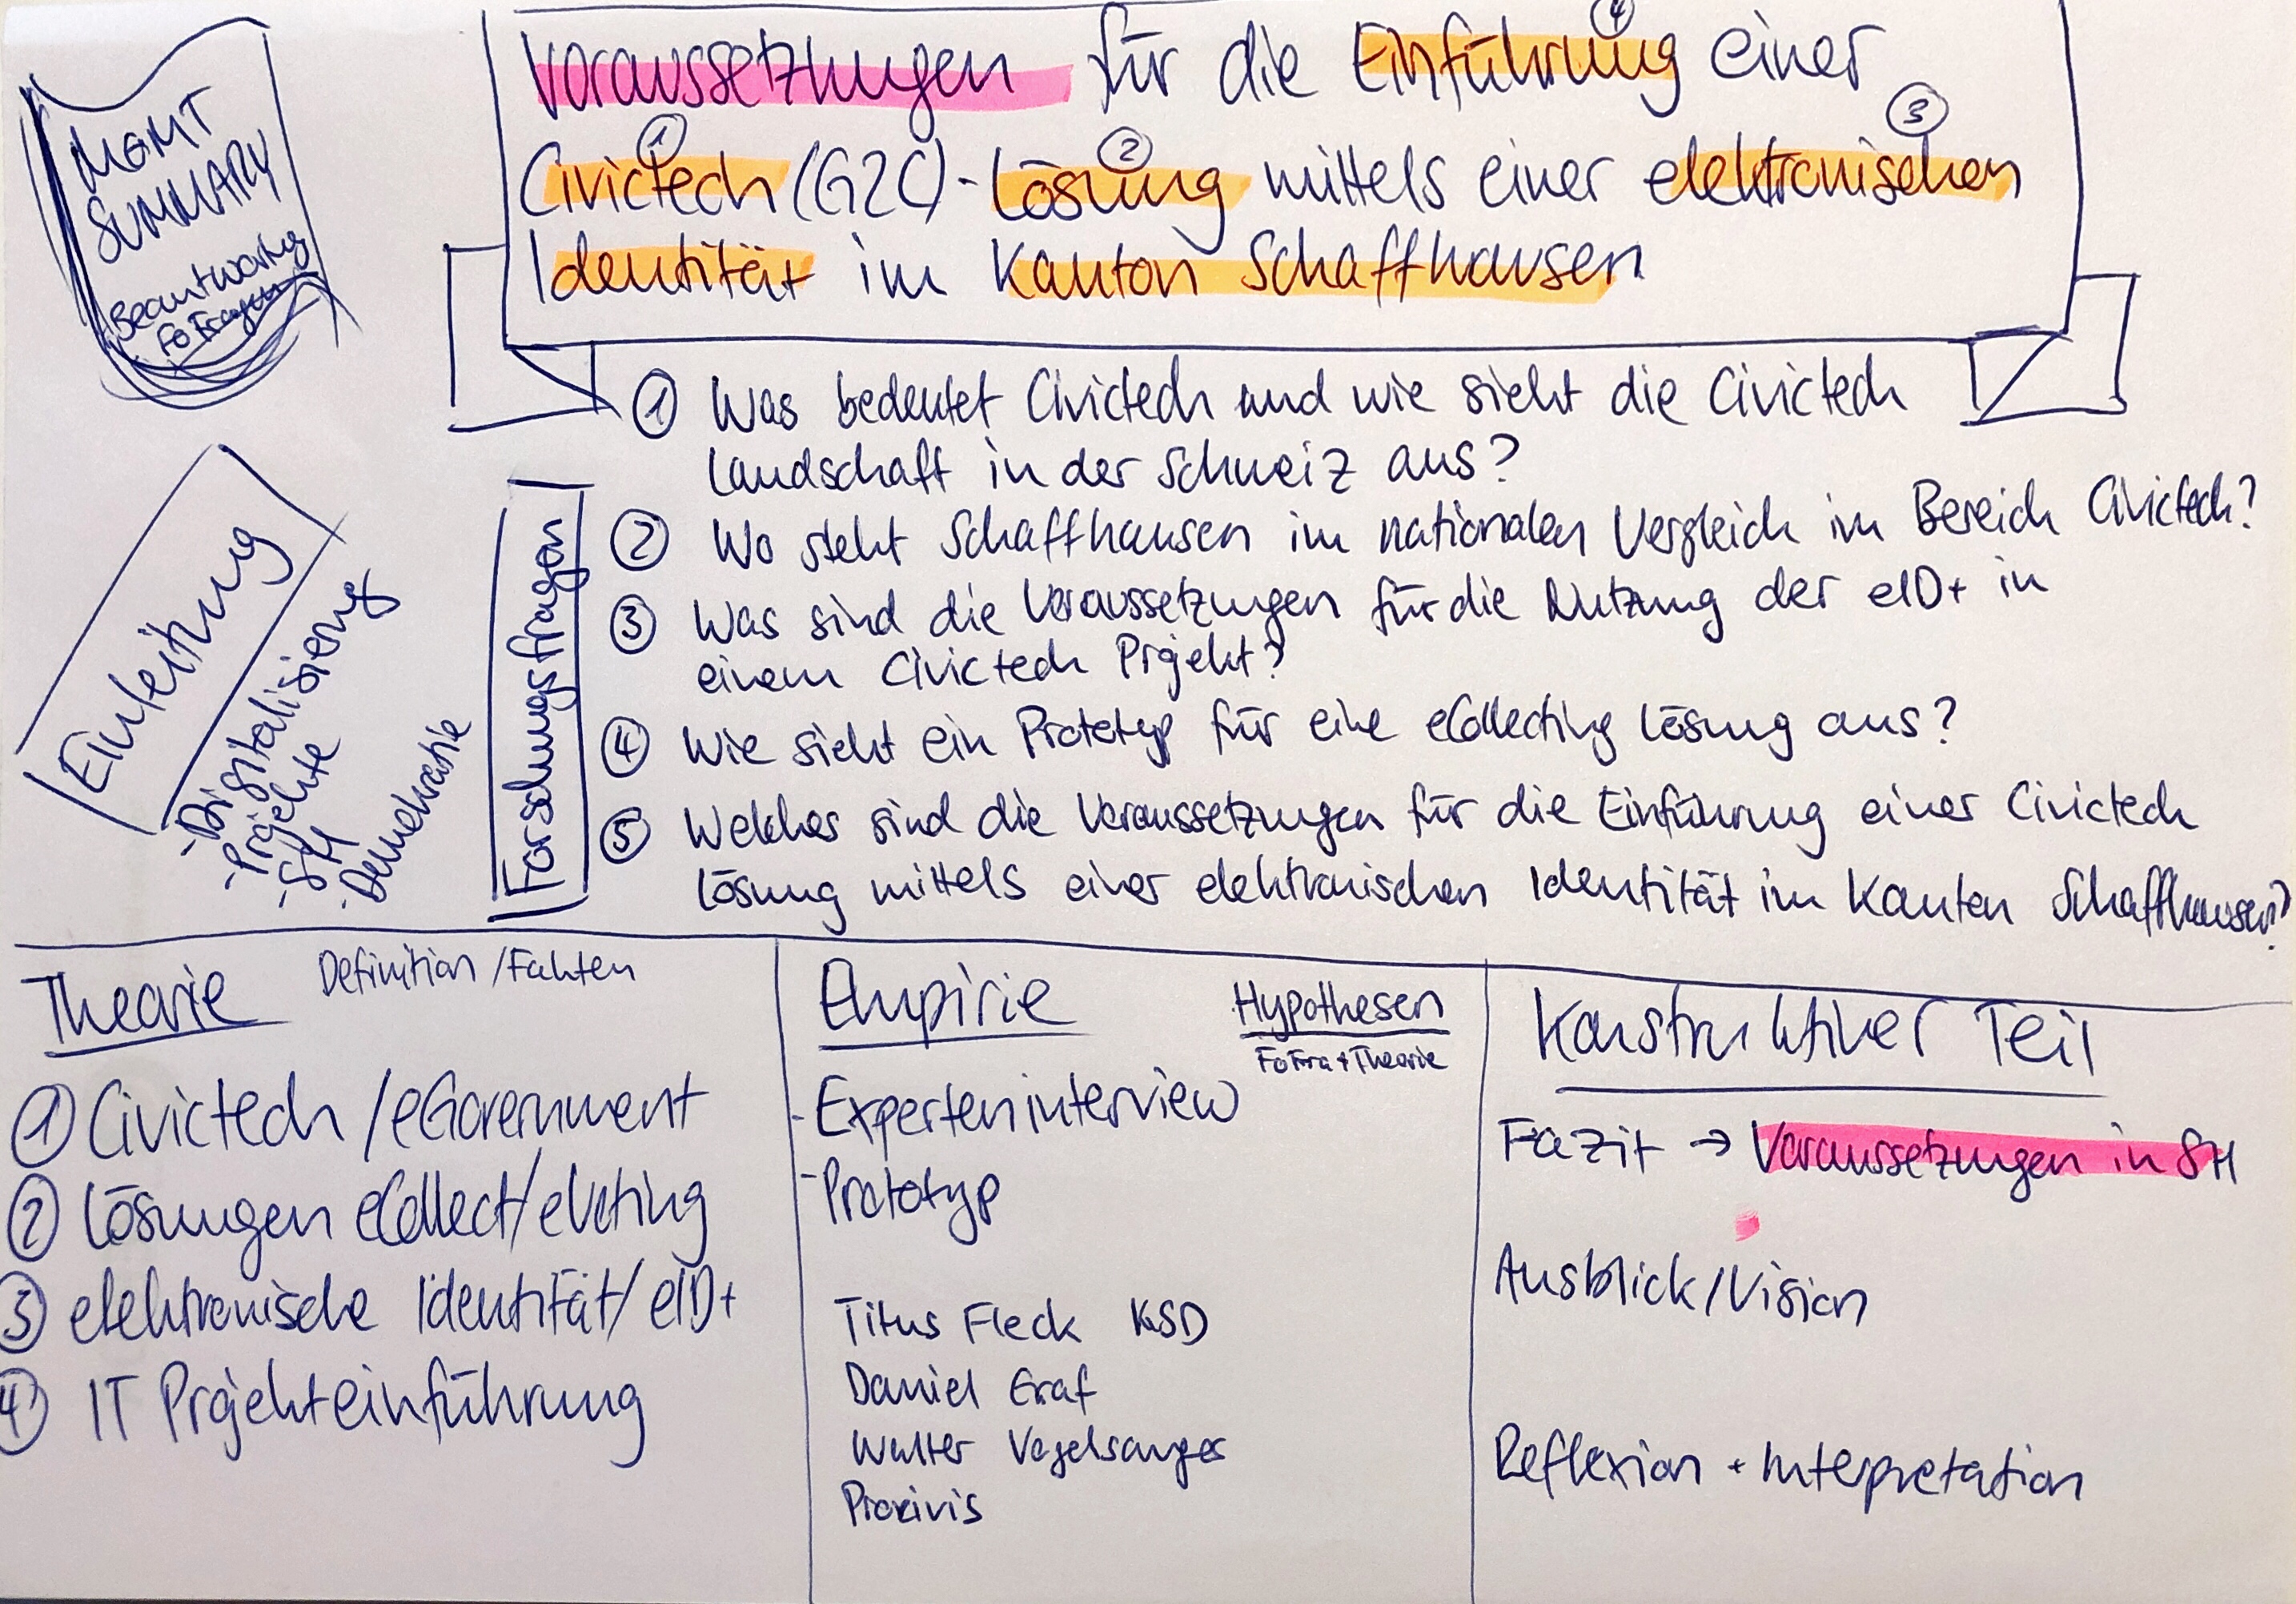 MGMT
SUMMARY
Beantwortung
FoFragen
Voraussetzungen für die Einführung einer
④
Civictech (G2C)-Lösung mittels einer elektronischen
① ② ③
Identität im Kanton Schaffhausen
Einleitung
- Digitalisierung
- Projekte
- SH
- Demokratie
Forschungsfragen
① Was bedeutet Civictech und wie sieht die Civictech
Landschaft in der Schweiz aus?
② Wo steht Schaffhausen im nationalen Vergleich im Bereich Civictech?
③ Was sind die Voraussetzungen für die Nutzung der eID+ in
einem Civictech Projekt?
④ Wie sieht ein Prototyp für eine eCollecting Lösung aus?
⑤ Welches sind die Voraussetzungen für die Einführung einer Civictech
Lösung mittels einer elektronischen Identität im Kanton Schaffhausen?
Theorie Definition/Fakten
① Civictech/eGovernment
② Lösungen eCollect/eVoting
③ elektronische Identität/eID+
④ IT Projekteinführung
Empirie Hypothesen
FoFra+Theorie
- Experteninterview
- Prototyp
Titus Fleck KSD
Daniel Graf
Walter Vogelsanger
Procivis
Konstruktiver Teil
Fazit → Voraussetzungen in SH
Ausblick/Vision
Reflexion + Interpretation